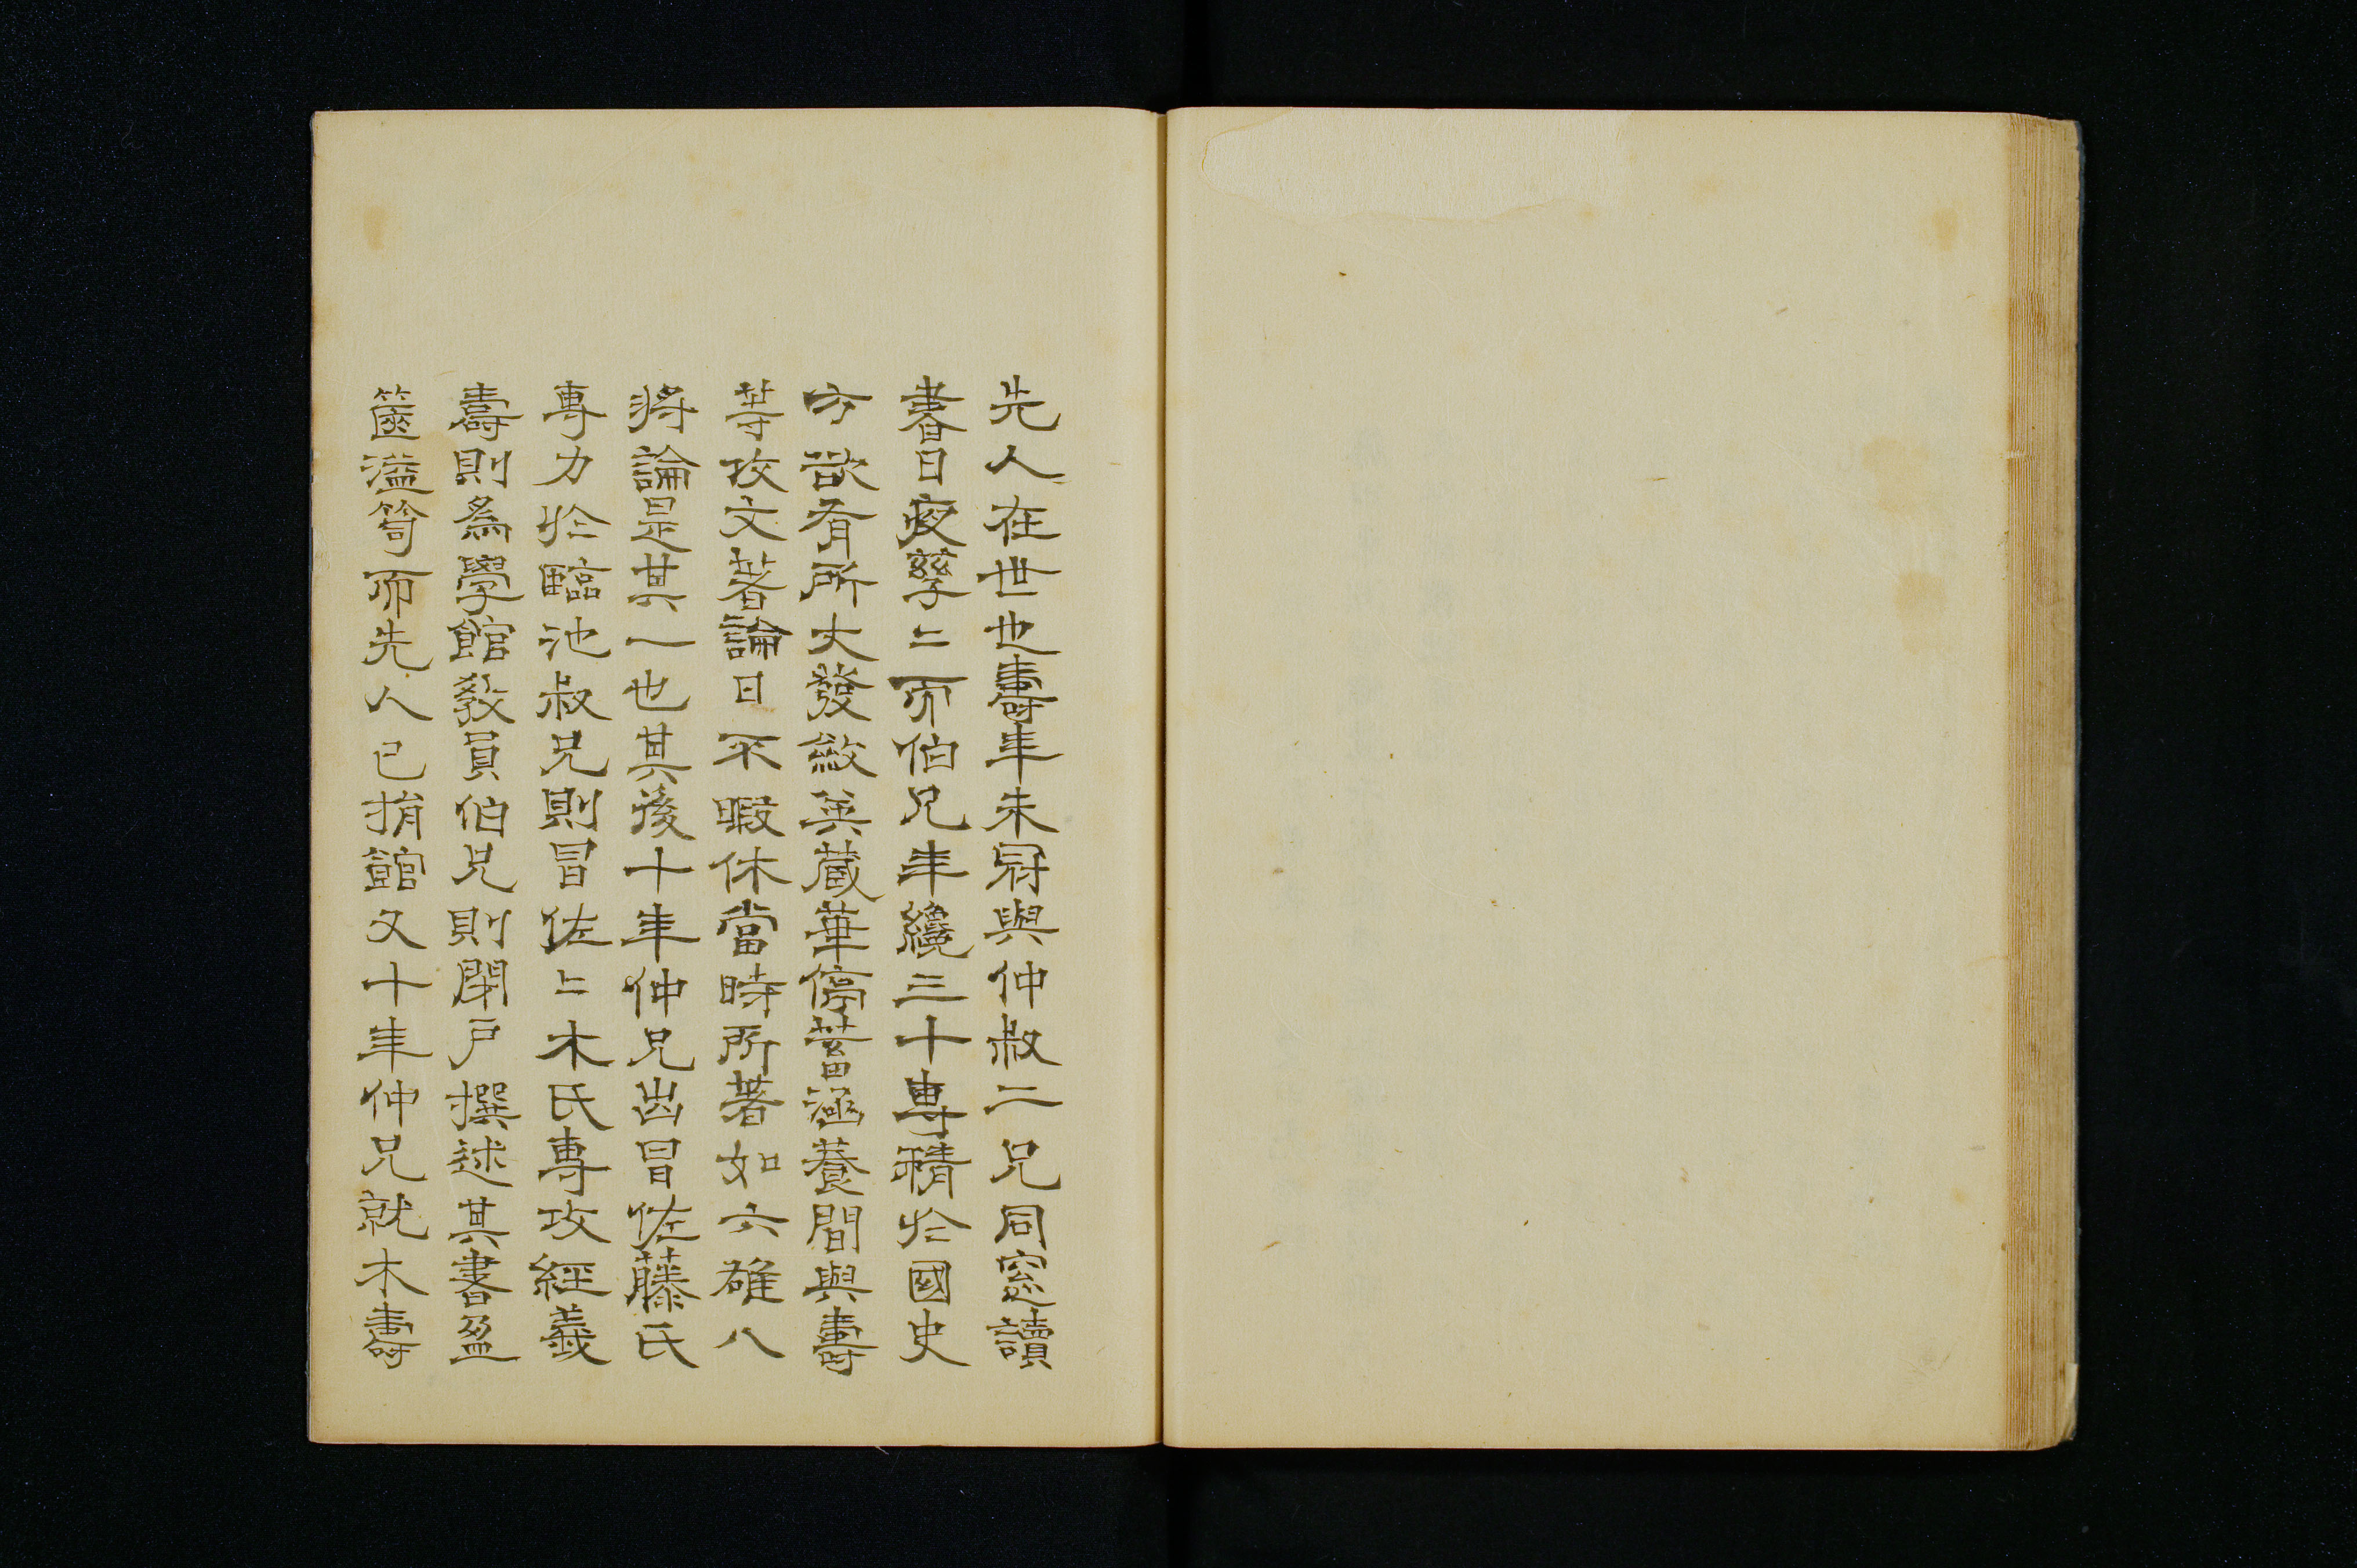 先人在世也壽年未冠與仲叔二兄同窓讀
書日夜孳〻而伯兄年纔三十專精於國史
方欲有所大發斂英蔵華停蓄涵養間與壽
等攻文著論日不暇休當時所著如六雄八
將論是其一也其後十年仲兄出冒佐藤氏
專力於臨池叔兄則冒佐〻木氏專攻經義
壽則為學館教員伯兄則閉戸撰述其書盈
篋溢笥而先人已捐館又十年仲兄就木壽